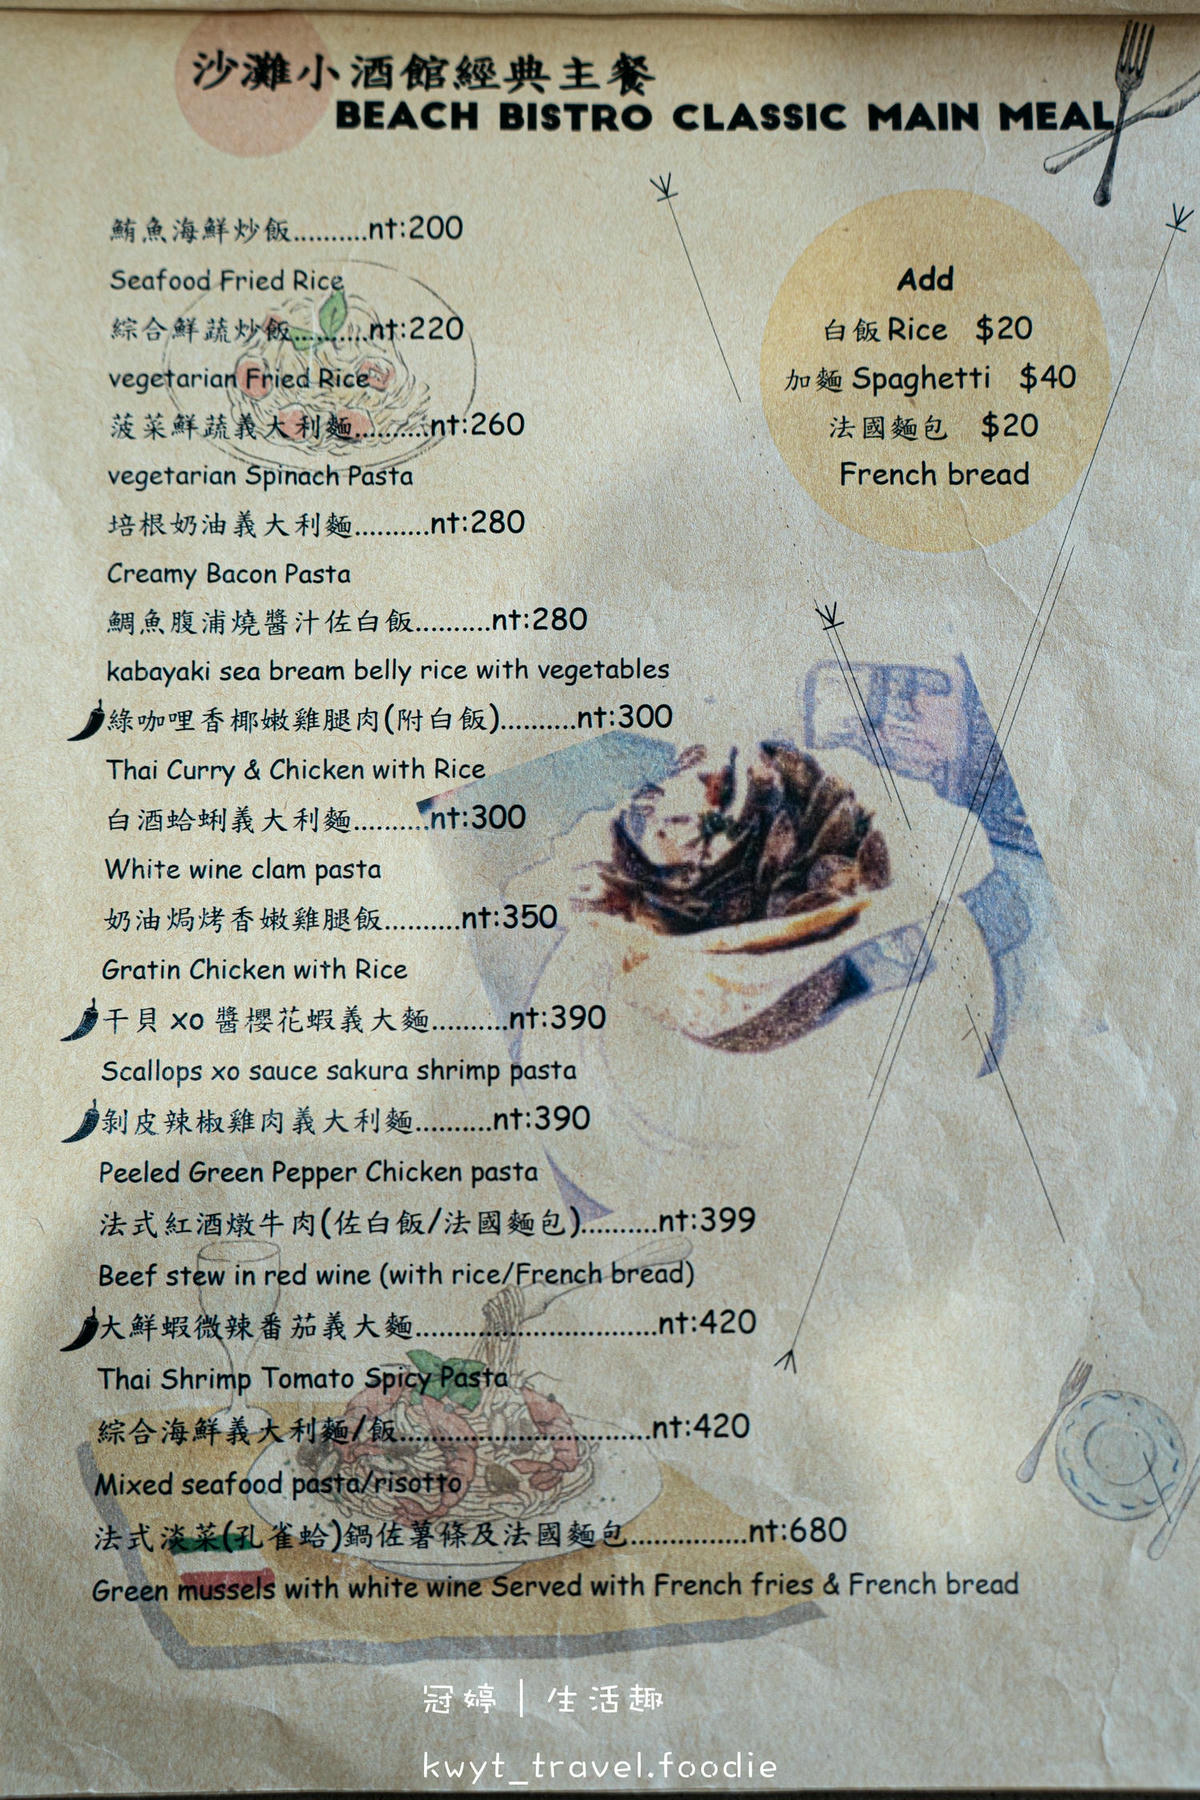 沙灘小酒館經典主餐
BEACH BISTRO CLASSIC MAIN MEAL
鮪魚海鮮炒飯..........nt:200
Seafood Fried Rice
綜合鮮蔬炒飯..........nt:220
vegetarian Fried Rice
菠菜鮮蔬義大利麵..........nt:260
vegetarian Spinach Pasta
培根奶油義大利麵..........nt:280
Creamy Bacon Pasta
鯛魚腹浦燒醬汁佐白飯..........nt:280
kabayaki sea bream belly rice with vegetables
綠咖哩香椰嫩雞腿肉(附白飯)..........nt:300
Thai Curry & Chicken with Rice
白酒蛤蜊義大利麵..........nt:300
White wine clam pasta
奶油焗烤香嫩雞腿飯..........nt:350
Gratin Chicken with Rice
干貝 xo 醬櫻花蝦義大麵..........nt:390
Scallops xo sauce sakura shrimp pasta
剝皮辣椒雞肉義大利麵..........nt:390
Peeled Green Pepper Chicken pasta
法式紅酒燉牛肉(佐白飯/法國麵包)..........nt:399
Beef stew in red wine (with rice/French bread)
大鮮蝦微辣番茄義大麵................................nt:420
Thai Shrimp Tomato Spicy Pasta
綜合海鮮義大利麵/飯.................................nt:420
Mixed seafood pasta/risotto
法式淡菜(孔雀蛤)鍋佐薯條及法國麵包...............nt:680
Green mussels with white wine Served with French fries & French bread
Add
白飯 Rice $20
加麵 Spaghetti $40
法國麵包 $20
French bread
冠婷 | 生活趣
kwyt_travel.foodie